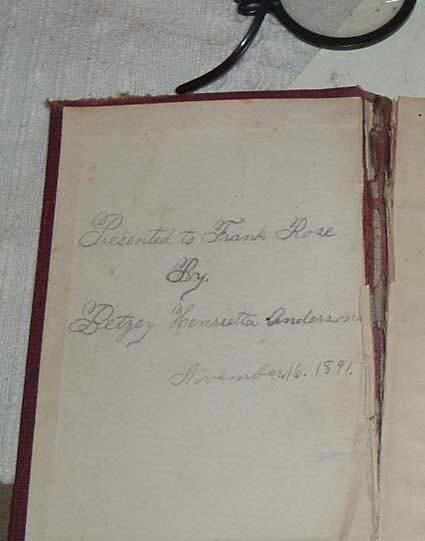 Presented to Frank Rose
By.
Betzey Henrietta Anderson
November, 16. 1891.